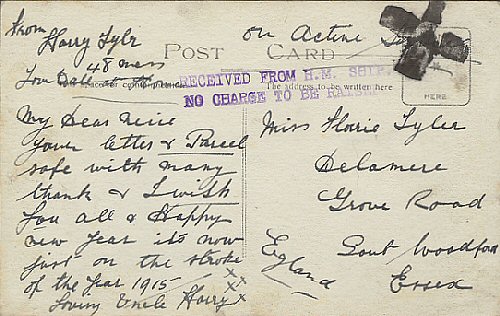 from
Harry Tylr
48 mess
On Active
POST CARD
RECEIVED FROM H.M. SHIP.
NO CHARGE TO BE RAISED
The address to be written here
HERE
My Dear Neice
your letter & Parcel
safe with many
thank & I wish
you all A Happy
new year its now
just on the stroke
of the year 1915
Loving Uncle Harry
x x x x
Miss Florrie Tyler
Delamere
Grove Road
Sout Woodford
Essex
Egland